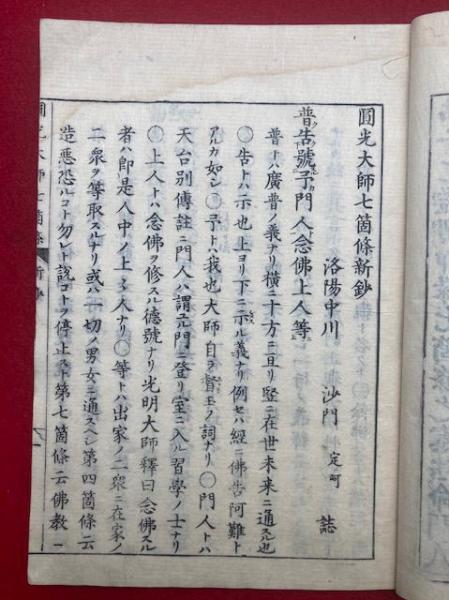 圓光大師七箇條新鈔
洛陽中川 沙門 定 誌
普告號予門人念佛上人等
普トハ廣普ノ義ナリ橫ニ十方ニ亘リ竪ニ在世未来ニ通スル也
○告トハ示也上ヨリ下ニ示ル義ナリ例セハ經ニ佛告阿難ト
アルカ如シ○予トハ我也大師自ラ ノ詞ナリ○門人トハ
天台別傳註ニ門人ハ謂ユル門ニ登リ室ニ入ル習學ノ士ナリ
○上人トハ念佛ヲ修スル德號ナリ光明大師釋曰念佛スル
者ハ即是人中ノ上々人ナリ○等トハ出家ノ二衆ニ在家ノ
二衆ヲ等取スルナリ或ハ一切ノ男女ニ通スヘシ第四箇條云
造悪恐ルコト勿レト説コトヲ停止スト第七箇條云佛教一
圓光大師七箇條 新鈔